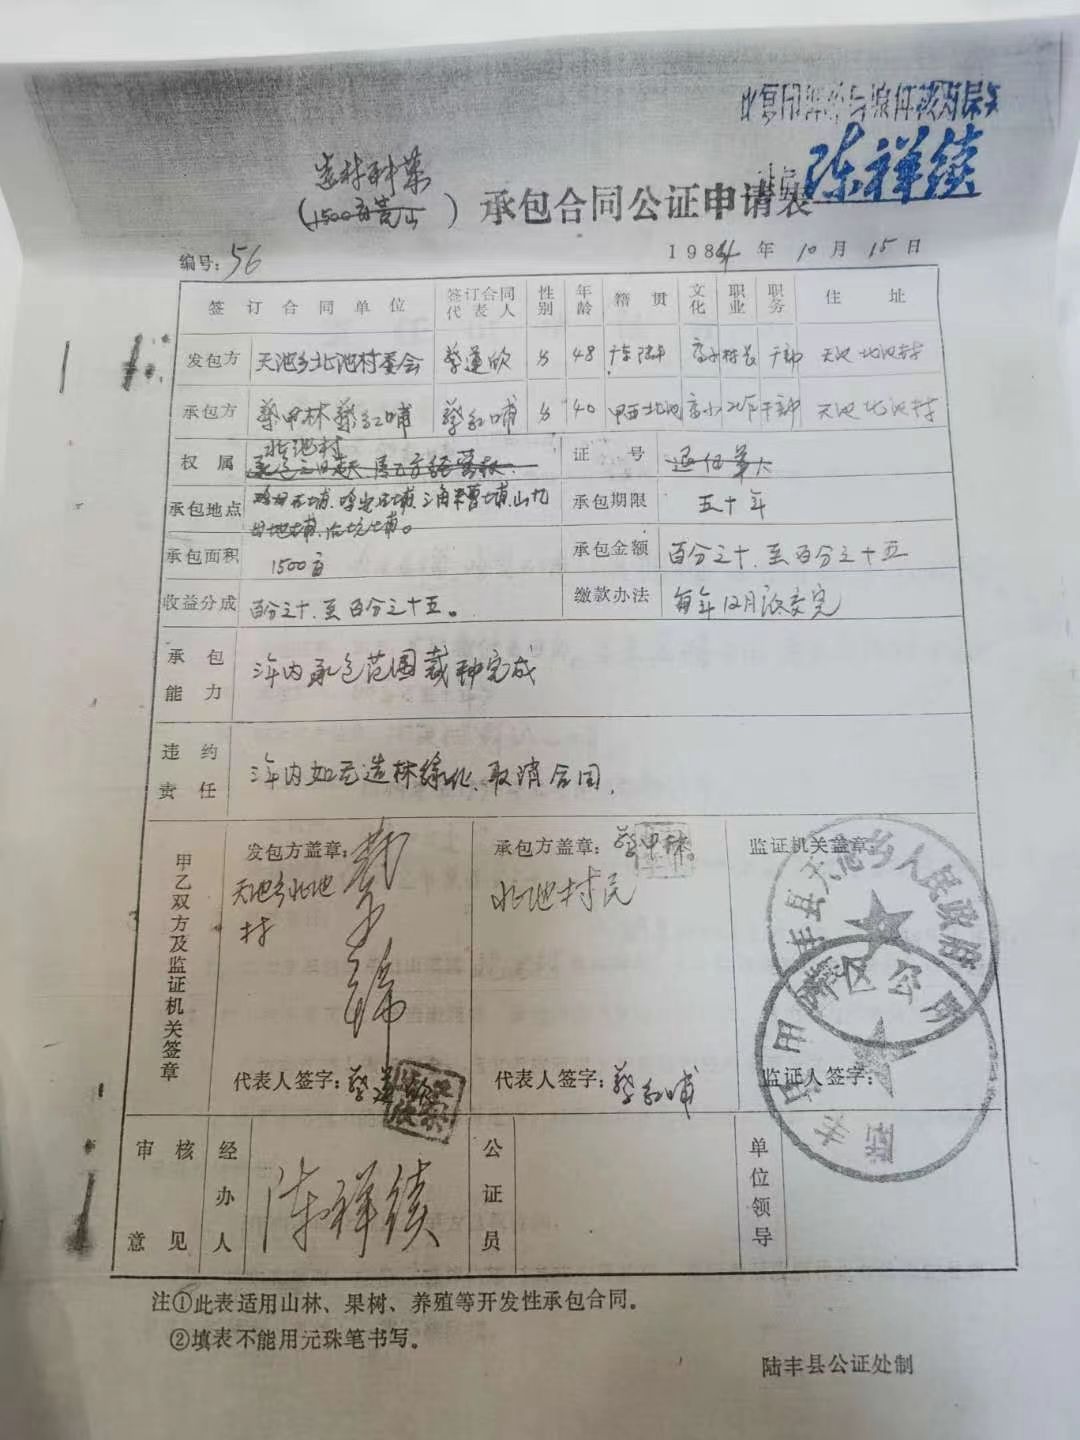 此复印件与原件核对属实
陈祥续
造林种菓
(1500亩荒山) 承包合同公证申请表
编号:56
1984年10月15日
签订合同单位 签订合同代表人 性别 年龄 籍贯 文化 职业 职务 住址
发包方 天池乡北池村委会 蔡莲欣 男 48 广东陆丰 高小 村长 干部 天池北池村
承包方 蔡甲林 蔡红哺 蔡红哺 男 40 甲西北池 高小 干部 天池北池村
北池村
权属 证号
承包地点 承包期限 五十年
承包面积 1500亩 承包金额 百分之十至百分之十五
收益分成 百分之十至百分之十五。 缴款办法 每年12月底交完
承包能力 三年内承包范围栽种完成
违约责任 三年内如无造林绿化、取消合同,
甲乙双方及监证机关签章
发包方盖章: 承包方盖章:蔡甲林 监证机关盖章:
天池乡北池村 北池村民
陆丰县天池乡人民政府
区公所
代表人签字:蔡莲欣 代表人签字:蔡红哺 监证人签字:
审核意见 经办人 陈祥续 公证员 单位领导
注①此表适用山林、果树、养殖等开发性承包合同。
②填表不能用元珠笔书写。
陆丰县公证处制